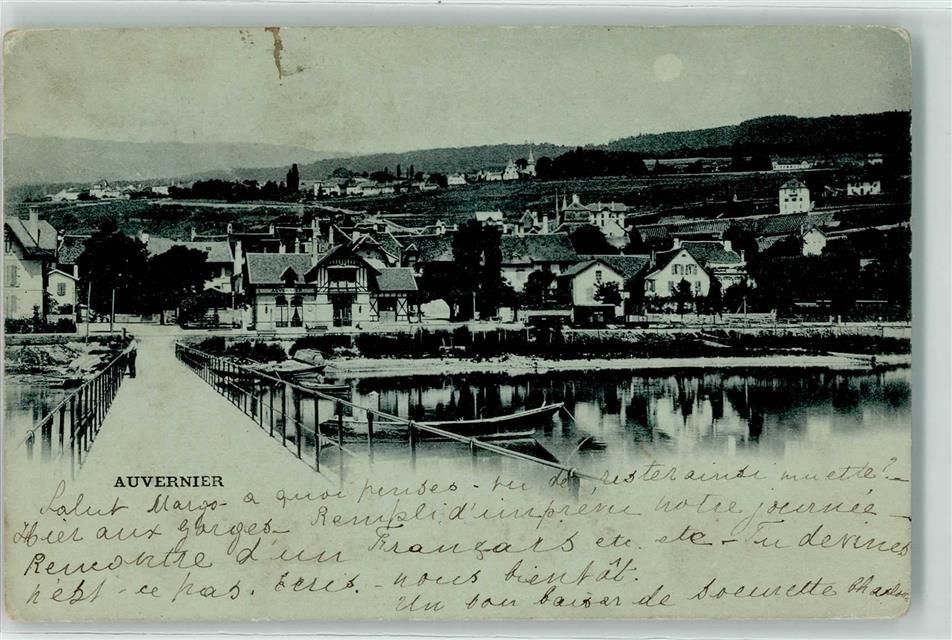 AUVERNIER
Salut Margo a quoi penses - tu de rester ainsi muette? -
Hier aux Gorges - Rempli d'imprévu notre journée -
Remontre d'un Français etc. etc - Tu devines
n'ést - ce pas. Ecris - nous bientôt.
Un bon baiser de soeurette